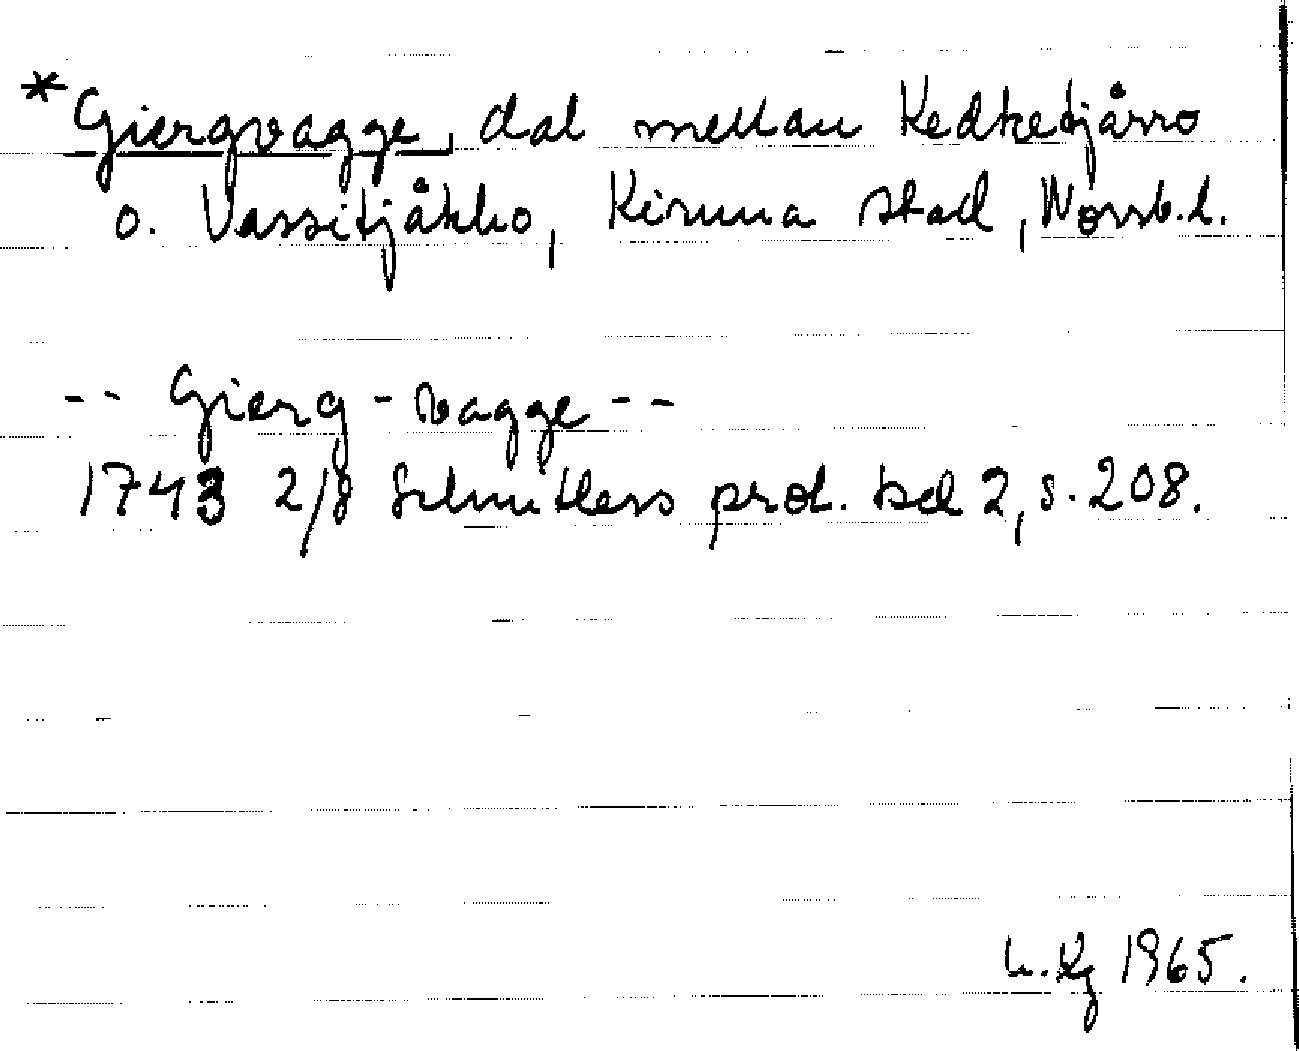 *Giergvagge, dal mellan Kedketjårro
o. Vassitjåkko, Kiruna stad, Norrb.l.
-- Gierg-vagge --
1743 2/8 Schnitlers prot. bd 2, s. 208.
1965.